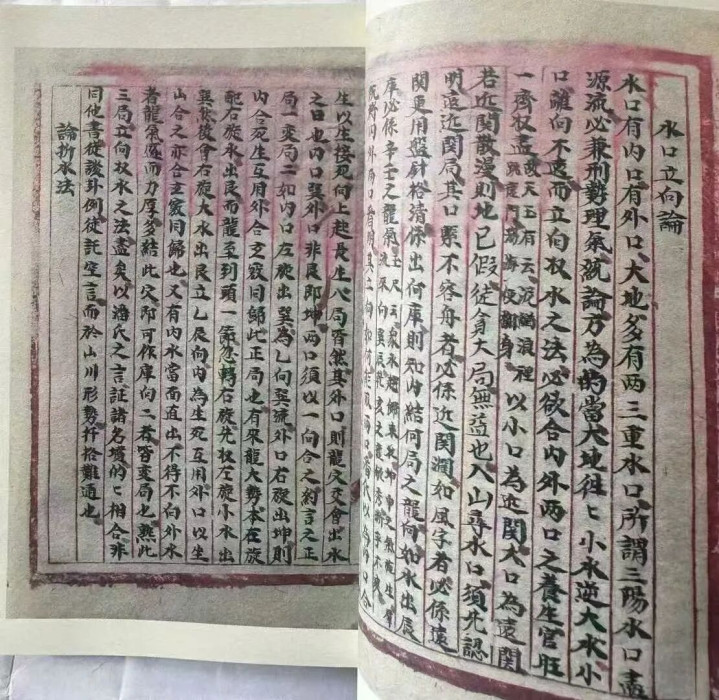 水口立向論
水口有内口有外口大地多有两三重水口所謂三陽水口盡
源流必兼刑勢理氣統論方為的當大地徃〻小水逆大水小
口離向不遠而立向収水之法必欲合内外两口之養生官旺
一齊収之故天玉有云 以小口為近関大口為遠関
若近関散漫則地已假徒貪大局無益也入山尋水口須先認
明遠近関局其口緊不容舟者必係近関濶如風字者必係遠
関更用盤針格清係出何庫則知内結何局之龍向如水出辰
庫必係辛壬之龍
生以生接死向上起長生八局皆然其外口則龍穴交會出水
之口也内口巽外口非艮即坤两口須以一向合之約言之正
局一变局二如内口左旋出巽為乙向巽流外口右旋出坤則
内合死生互用外合玄竅同歸此正局也有來龍大勢本在旋
配右旋水出艮而龍至到頭一節忽轉右旋先収左旋小水出
巽然後會右旋大水出艮立乙辰向内為生死互用外口以生
山合之亦合玄竅同歸也又有内水當面直出不得不向外水
者龍氣遠而力厚多結此穴即可作庫向二者皆变局也熟此
三局立向収水之法盡矣以潘氏之言証諸名墳的〻相合非
同他書従談卦例徒託空言而於山川形勢扞格難通也
論折水法